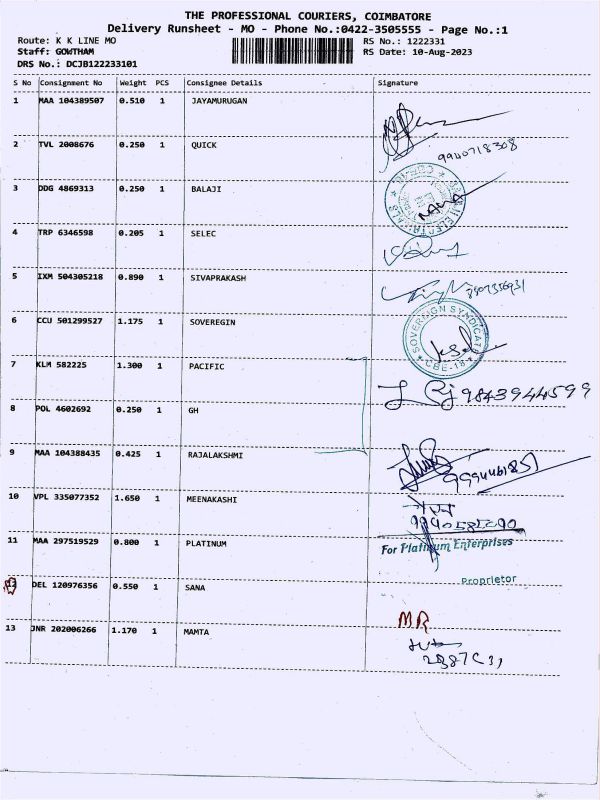 THE PROFESSIONAL COURIERS, COIMBATORE
Delivery Runsheet - MO - Phone No.:0422-3505555 - Page No.:1
Route: K K LINE MO RS No.: 1222331
Staff: GOWTHAM RS Date: 10-Aug-2023
DRS No.: DCJB122233101
S No Consignment No Weight PCS Consignee Details Signature
1 MAA 104389507 0.510 1 JAYAMURUGAN
2 TVL 2008676 0.250 1 QUICK
9940718308
3 DDG 4869313 0.250 1 BALAJI
4 TRP 6346598 0.205 1 SELEC
5 IXM 504305218 0.890 1 SIVAPRAKASH
6 CCU 501299527 1.175 1 SOVEREGIN
SOVEREIGN SYNDICATE
CBE-18
7 KLM 582225 1.300 1 PACIFIC
9843944599
8 POL 4602692 0.250 1 GH
9 MAA 104388435 0.425 1 RAJALAKSHMI
10 VPL 335077352 1.650 1 MEENAKASHI
11 MAA 297519529 0.800 1 PLATINUM
For Platinum Enterprises
Proprietor
12 DEL 120976356 0.550 1 SANA
MR
13 JNR 202006266 1.170 1 MAMTA